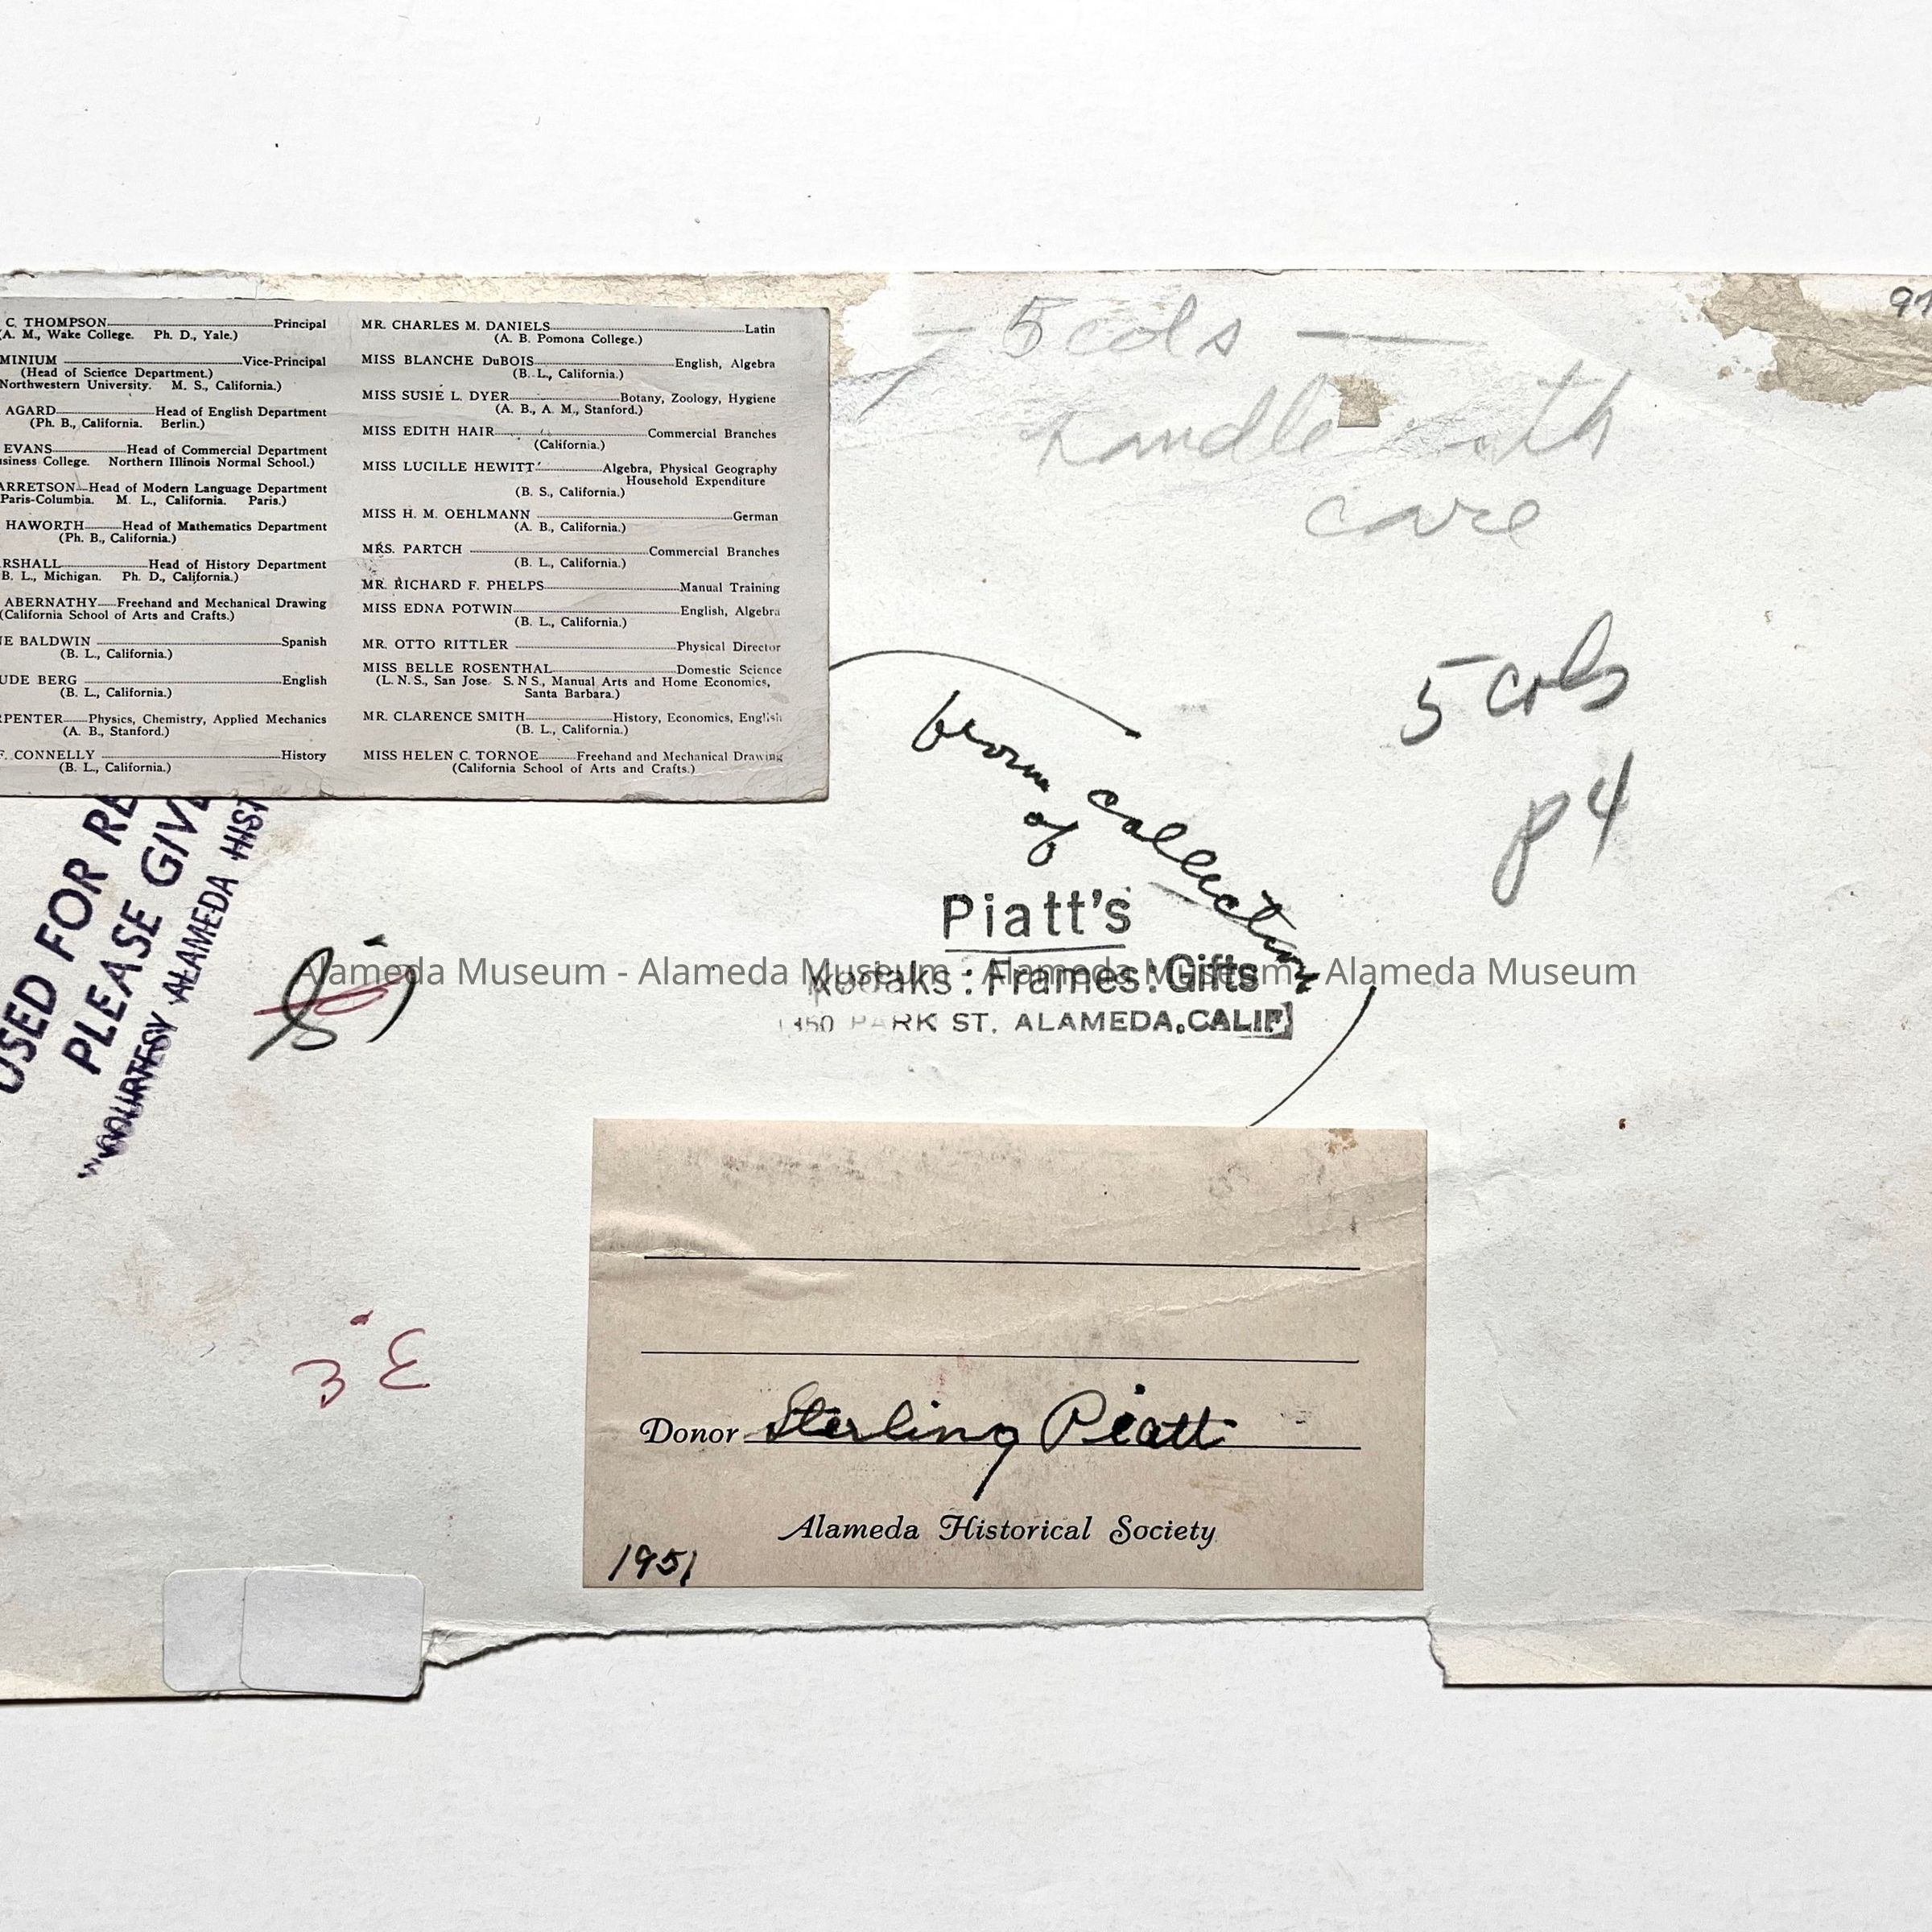 C. THOMPSON Principal
(A. M., Wake College. Ph. D., Yale.)
MINIUM Vice-Principal
(Head of Science Department.)
Northwestern University. M. S., California.)
AGARD Head of English Department
(Ph. B., California. Berlin.)
EVANS Head of Commercial Department
siness College. Northern Illinois Normal School.)
ARRETSON Head of Modern Language Department
Paris-Columbia. M. L., California. Paris.)
HAWORTH Head of Mathematics Department
(Ph. B., California.)
RSHALL Head of History Department
B. L., Michigan. Ph. D., California.)
ABERNATHY Freehand and Mechanical Drawing
(California School of Arts and Crafts.)
NE BALDWIN Spanish
(B. L., California.)
UDE BERG English
(B. L., California.)
RPENTER Physics, Chemistry, Applied Mechanics
(A. B., Stanford.)
F. CONNELLY History
(B. L., California.)
MR. CHARLES M. DANIELS Latin
(A. B. Pomona College.)
MISS BLANCHE DuBOIS English, Algebra
(B. L., California.)
MISS SUSIE L. DYER Botany, Zoology, Hygiene
(A. B., A. M., Stanford.)
MISS EDITH HAIR Commercial Branches
(California.)
MISS LUCILLE HEWITT Algebra, Physical Geography
Household Expenditure
(B. S., California.)
MISS H. M. OEHLMANN German
(A. B., California.)
MRS. PARTCH Commercial Branches
(B. L., California.)
MR. RICHARD F. PHELPS Manual Training
MISS EDNA POTWIN English, Algebra
(B. L., California.)
MR. OTTO RITTLER Physical Director
MISS BELLE ROSENTHAL Domestic Science
(L. N. S., San Jose. S. N S., Manual Arts and Home Economics,
Santa Barbara.)
MR. CLARENCE SMITH History, Economics, English
(B. L., California.)
MISS HELEN C. TORNOE Freehand and Mechanical Drawing
(California School of Arts and Crafts.)
— 5 cols —
handle with
care
5 cols
p4
USED FOR RE
PLEASE GIVE
"COURTESY ALAMEDA HIST
from collection
of
Piatt's
Kodaks : Frames : Gifts
PARK ST. ALAMEDA, CALIF
Alameda Museum - Alameda Museum - Alameda Museum - Alameda Museum
Donor Sterling Piatt
Alameda Historical Society
1951